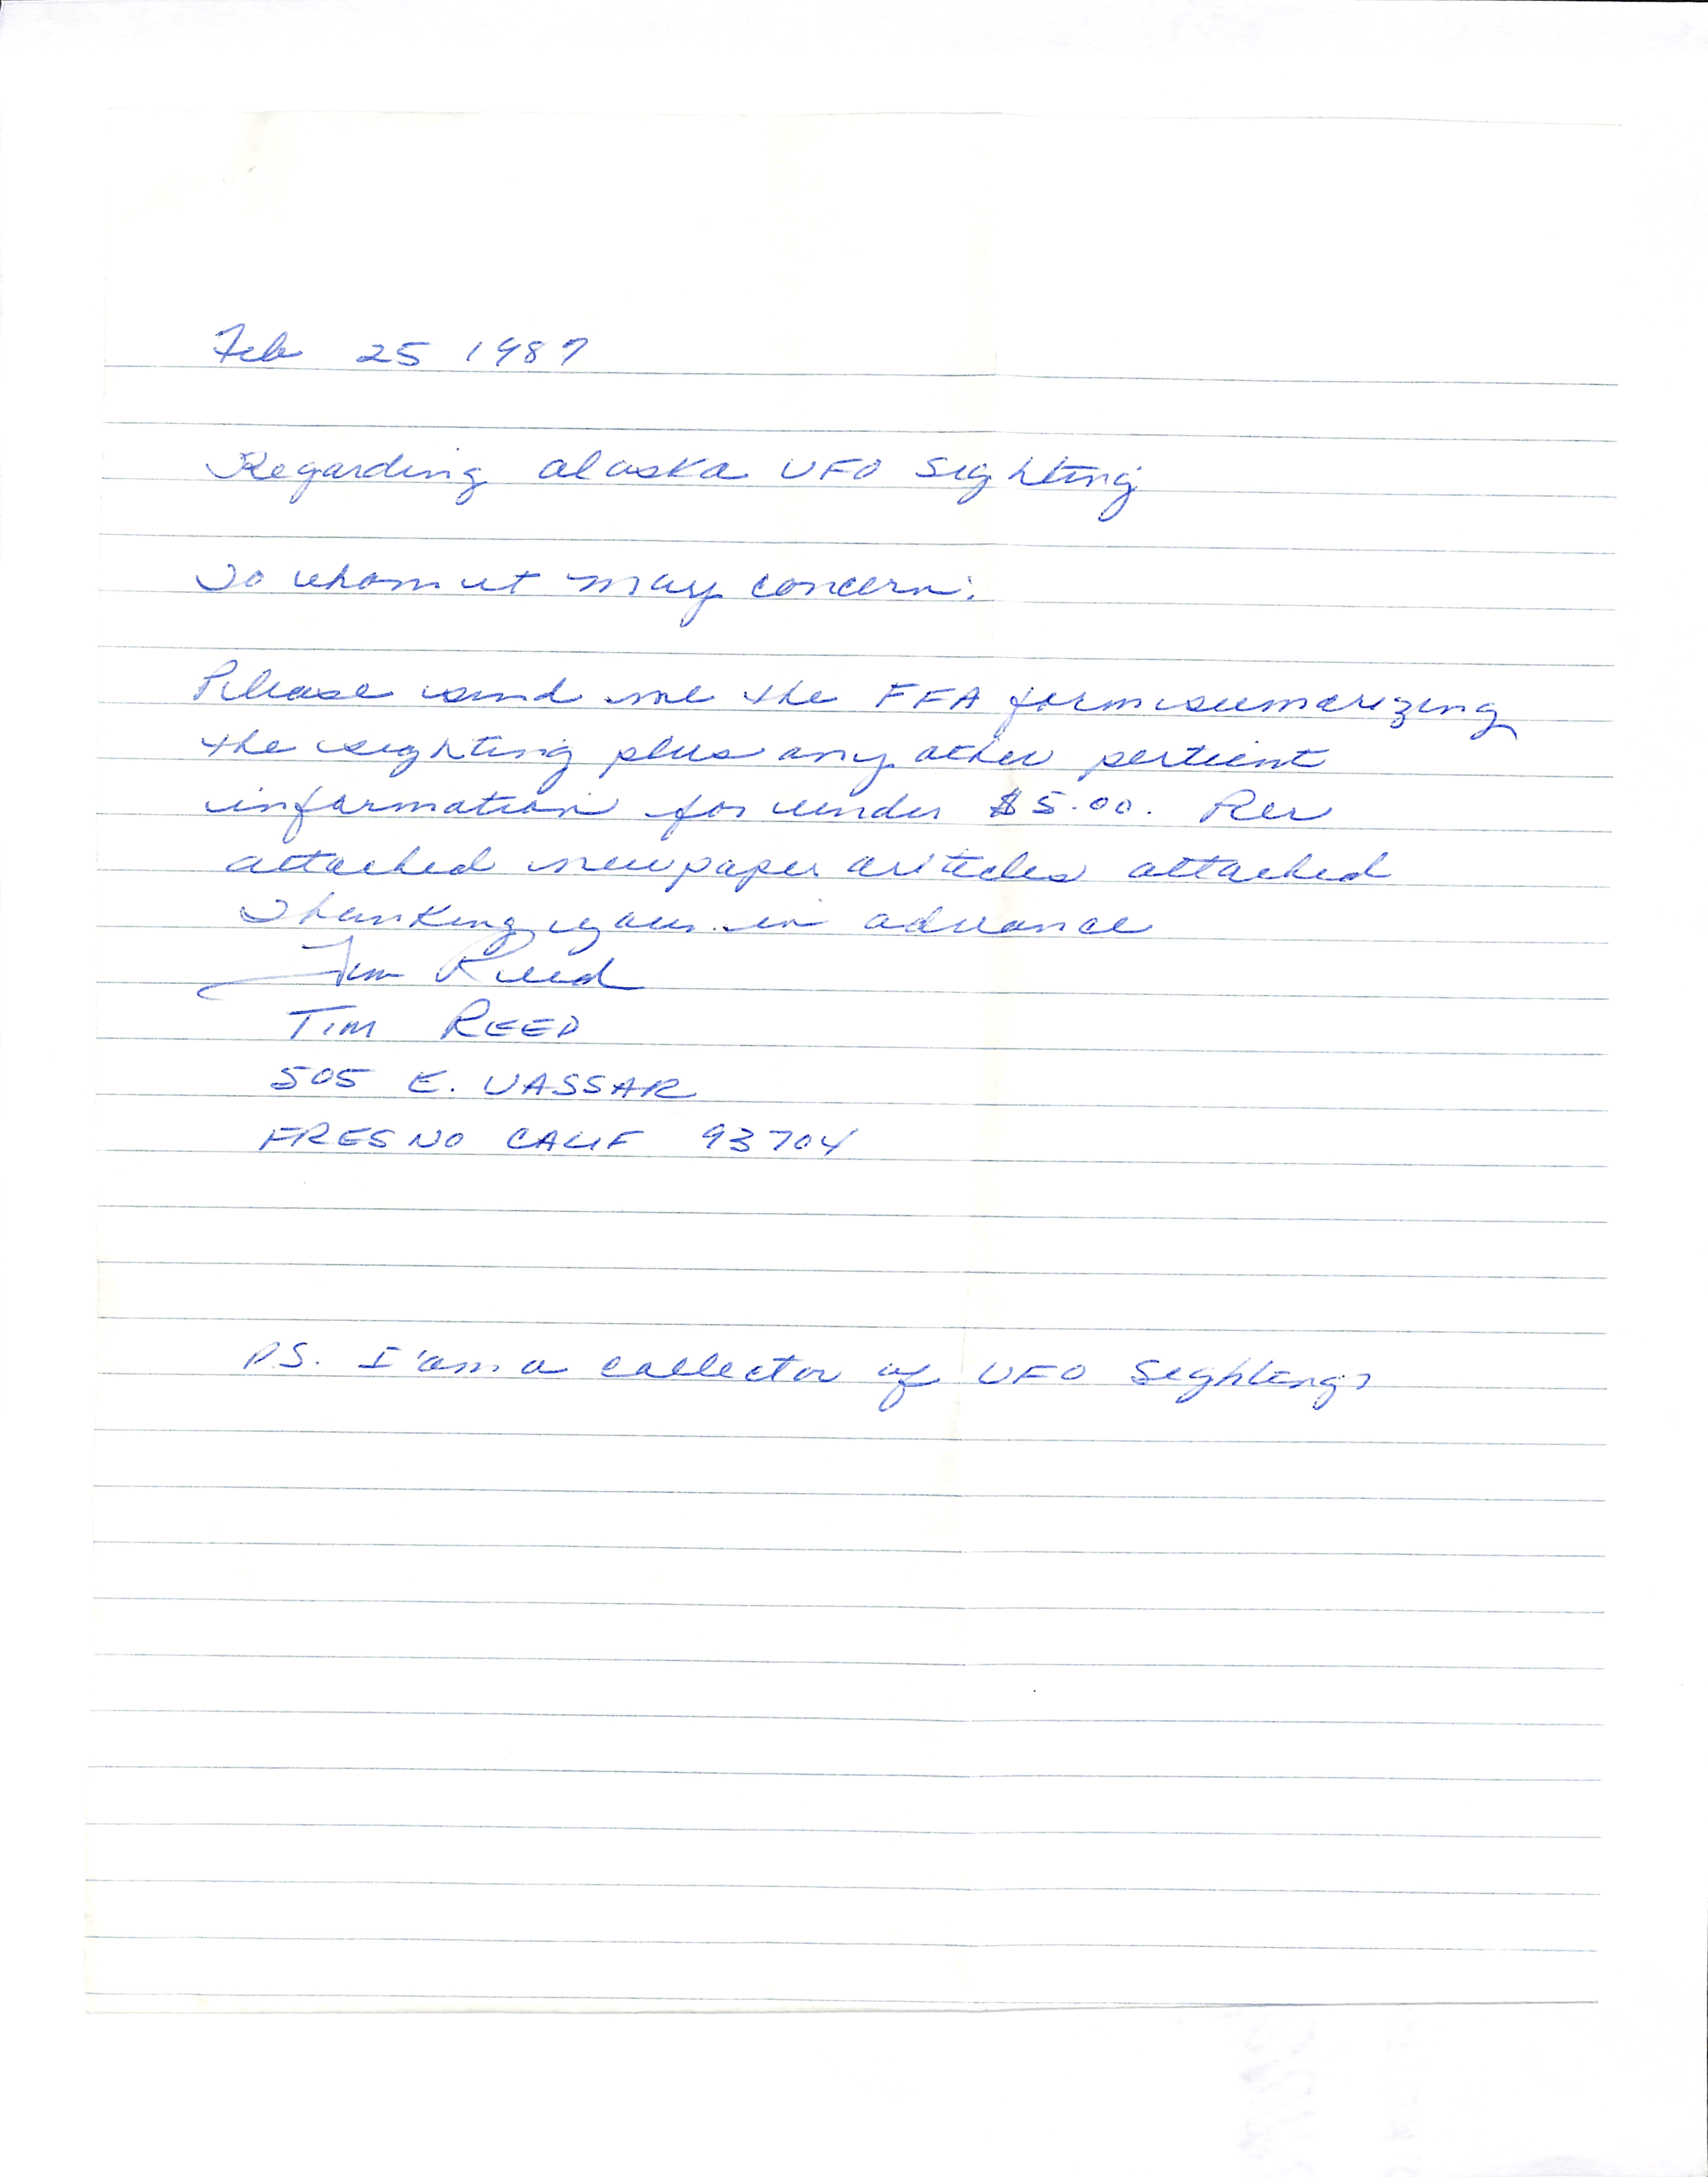 Feb 25 1987
Regarding Alaska UFO Sighting
To whom it may concern:
Please send me the FFA form sumarizing
the sighting plus any other pertient
information for under $5.00. Per
attached newpaper articles attached
Thanking you in advance
Tim Reed
TIM REED
505 E. VASSAR
FRESNO CALIF 93704
P.S. I'am a collector of UFO Sightings